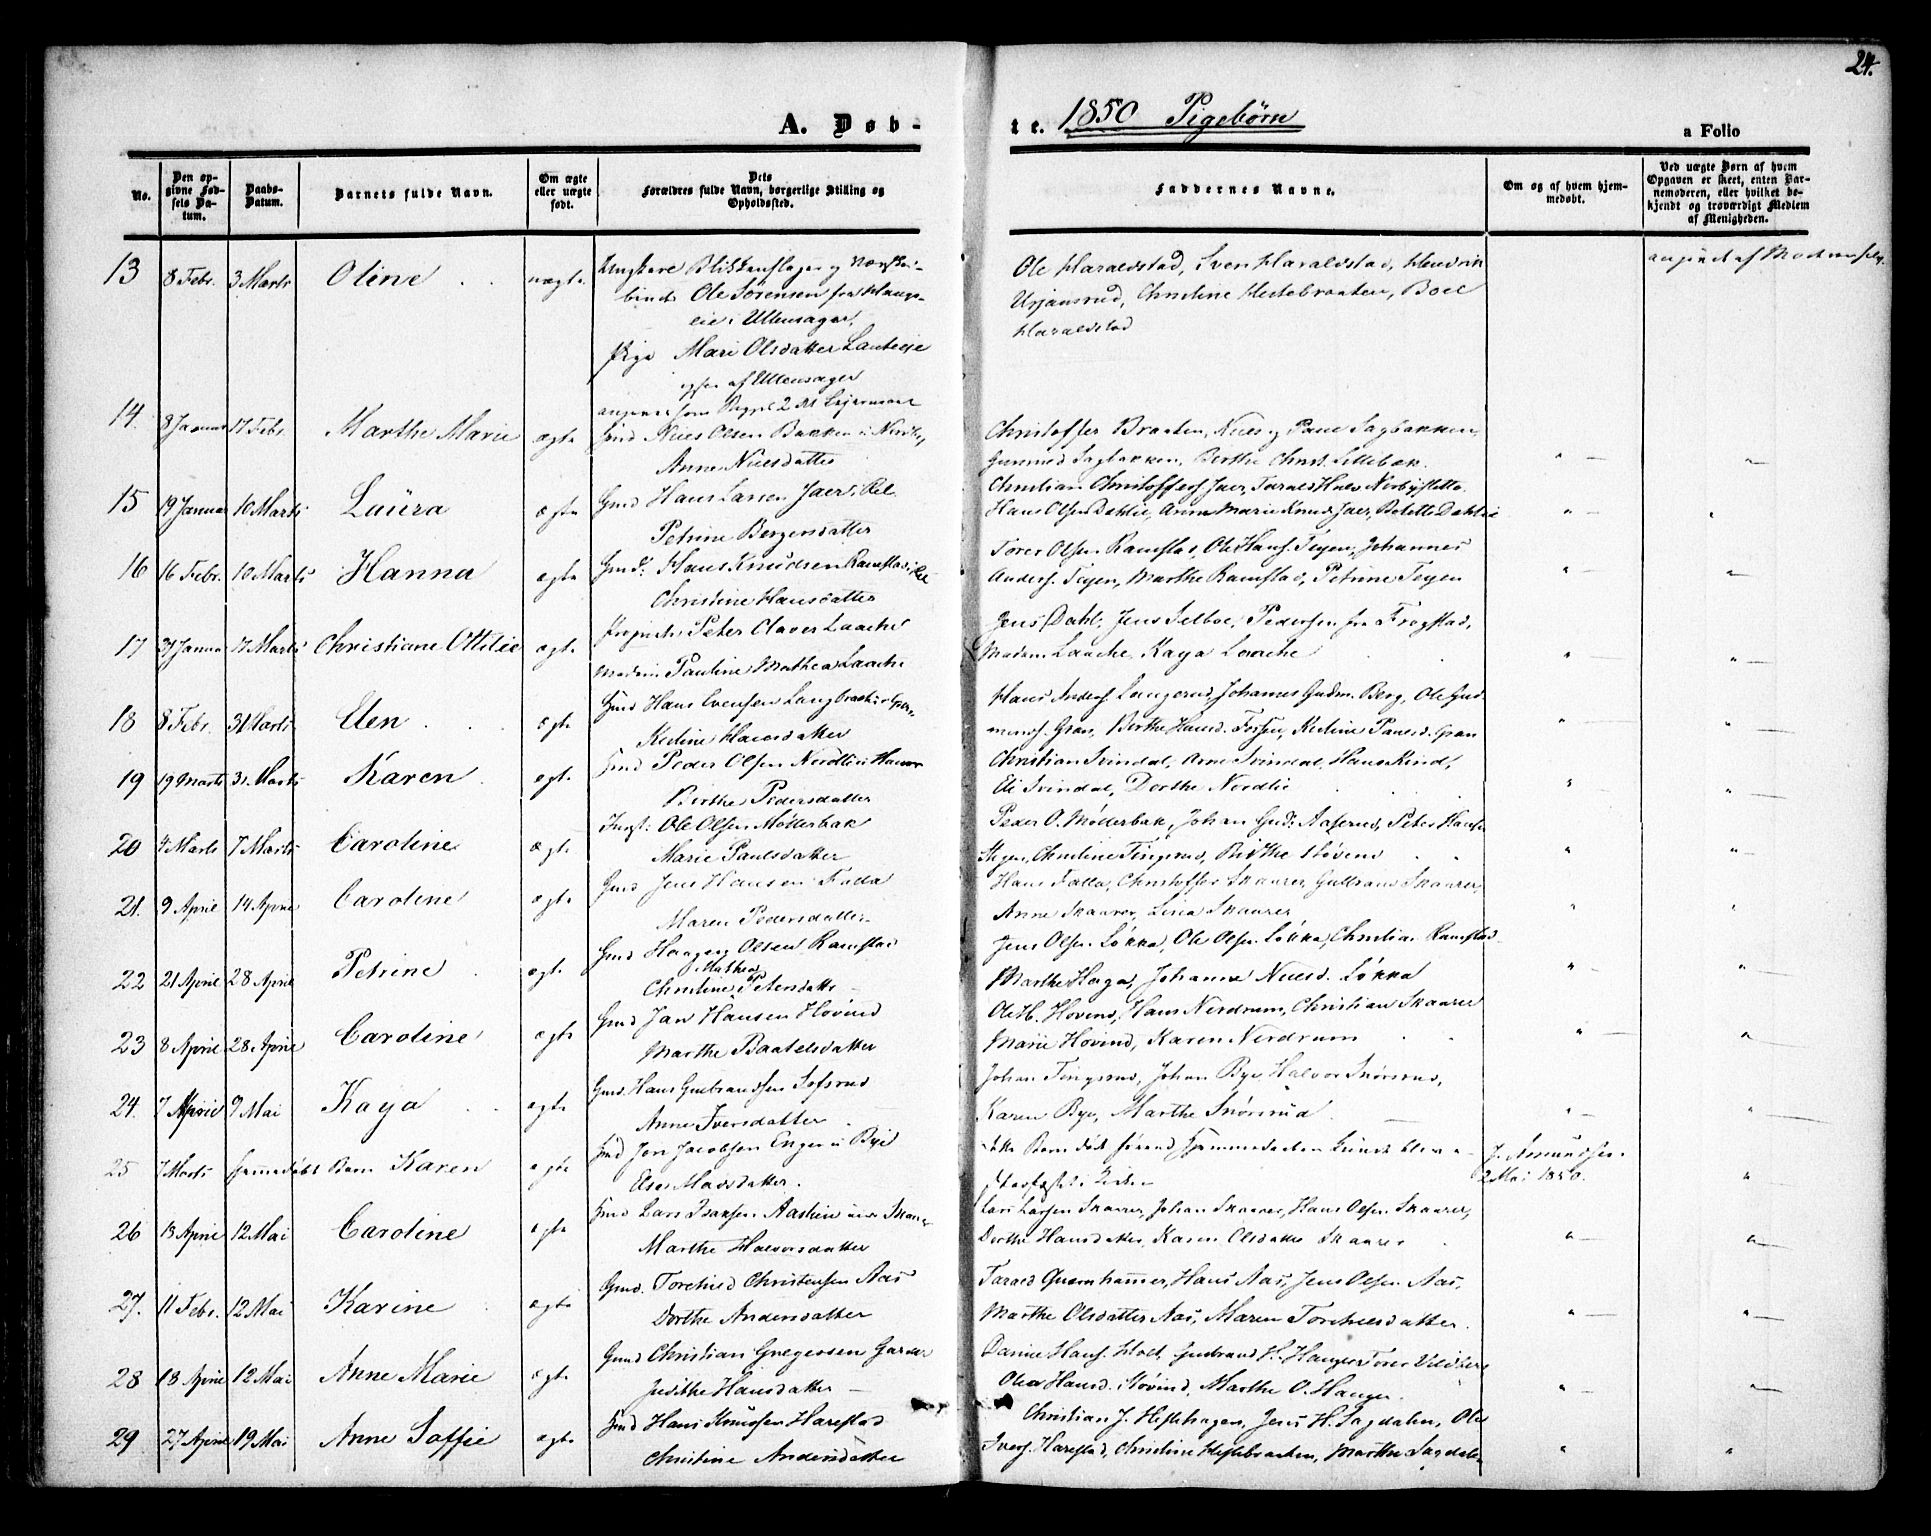 24.
A. Døb-
te. 1850 Pigebørn
a Folio
No.
Den opgivne Fødsels Datum.
Daabs-Datum.
Barnets fulde Navn.
Om ægte eller uægte født.
Dets Forældres fulde Navn, borgerlige Stilling og Opholdssted.
Faddernes Navne.
Om og af hvem hjemmedøbt.
Ved uægte Børn af hvem Opgaven er skeet, enten Barnemoderen, eller hvilket bekjendt og troværdigt Medlem af Menigheden.
13 8 Febr. 3 Marts Oline uægte
Ungkarl Blikkenslager og
Ole Sørensen fra
i Ullensager,
Pige Marie Olsdatter
af Ullensager
Ole Haraldstad, Sven Haraldstad, Hendrik
Urjansrud, Christine Hestebraaten, Boel
Haraldstad
angivet af Moderen selv.
14. 8 Januar 17 Febr. Marthe Marie ægte
Gmd Niels Olsen Bakken i
Anne Nielsdatter
Christoffer Braaten, Niels og Paul Sagbakken,
Gunnild Sagbakken, Berthe Christ. Lillebæk.
15 19 Januar 10 Marts Laura ægte
Gmd Hans Larsen Jaer
Petrine Bergersdatter
Christian Christoffers Jaer,
Hans Olsen Dahlie, Anne Marie Knuds Jaer, Belette Dahlie
16 16 Febr. 10 Marts Hanna ægte
Gmd. Hans Knudsen Ramstad
Christine Hansdatter
Torer Olsen Ramstad, Ole Hans. Teyen, Johannes
Anders. Teyen, Marthe Ramstad, Petrine Teyen
17 31 Januar 17 Marts Christiane Ottilie ægte
Peter Claver Laache
Madam Pauline Mathea Laache
Jens Dahl, Jens Selboe, Pedersen fra Frogstad,
Madam Laache, Kaya Laache
18 8 Febr. 31 Marts Elen ægte
Gmd Hans Evensen Langbraaten
Kirstine Hansdatter
Hans Anders. Langerud, Johannes Gudm. Berg, Ole Gud-
munds. Gran, Berthe Hansd. Fossen, Kirstine Paulsd. Gran
19 19 Marts 31 Marts Karen ægte
Gmd Peder Olsen Nordlie
Berthe Pedersdatter
Christian Svindal, Arne Svindal, Hans Kind,
Eli Svindal, Dorthe Nordlie
20 4 Marts 7 Marts Caroline ægte
Ole Olsen Møllerbæk
Marie Paulsdatter
Peder O. Møllerbæk, Johan Gud. Aaserud, Peter Hansen
Christine Tingsrud, Berthe
21. 9 April 14 April Caroline ægte
Gmd Jens Hansen Falla
Maren Pedersdatter
Hans Falla, Christoffer Skaarer, Gulbrand Skaarer,
Anne Skaarer, Lina Skaarer
22 21 April 28 April Petrine ægte
Gmd Haagen Olsen Ramstad
Mathea
Christine Petersdatter
Jens Olsen Løkka, Ole Olsen Løkka, Christian Ramstad
Marthe Haga, Johanne Nielsd. Løkka
23 8 April 28 April Caroline ægte
Gmd Jan Hansen Hovind
Marthe Baatelsdatter
Ole H. Hovind, Hans Nordrum, Christian Skaarer
Marie Hovind, Karen Nordrum
24. 7 April 9 Mai Kaya ægte
Gmd. Hans Gulbrandsen Sofsrud
Anne Iversdatter
Johan Tingsrud, Johan Bye, Halvor Snorsrud,
Karen Bye, Marthe Snorsrud
25 7 Marts hjemmedøbt Barn Karen ægte
Gmd Jon Jacobsen Enger u Bye
Else Madsdatter.
dette Barn døde førend Hjemmedaaben kunde blive
stadfæstet i Kirken
J. Amundsen
2 Mai 1850.
26 13 April 12 Mai Caroline ægte
Gmd Lars Isaksen Aaslien under Skaarer
Marthe Halvorsdatter
Lars Larsen Skaarer, Johan Skaarer, Hans Olsen Skaarer,
Dorthe Hansdatter, Karen Olsdatter Skaarer
27. 11 Febr. 12 Mai Karine ægte
Gmd. Torchild Christensen Aas
Dorthe Andersdatter
Tarald Quernhammer, Hans Aas, Jens Olsen Aas,
Marthe Olsdatter Aas, Maren Torchildsdatter.
28 18 April 12 Mai Anne Marie ægte
Gmd Christian Gregersen Garder
Judithe Hansdatter
Daniel Hans. Holt, Gudbrand H. Hauger, Torer
Olea Hansd. Hovind, Marthe O. Hauger.
29 27 April 19 Mai Anne Soffie ægte
Gmd Hans Knudsen Harestad
Christine Andersdatter
Christian J. Hestehagen, Jens H. Sagdalen, Ole
Ivers. Harestad, Christine Hestebraaten, Marthe Sagdalen